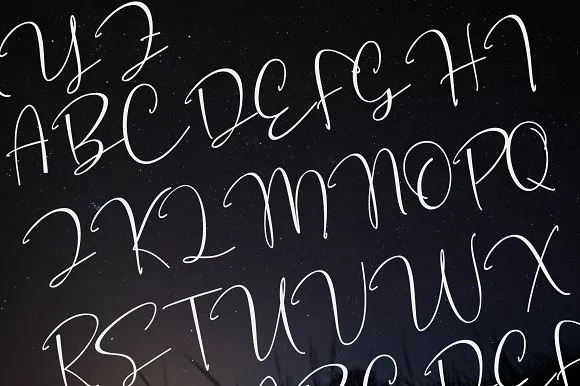 Y Z
A B C D E F G H I
J K L M N O P Q
R S T U V W X
B C D E